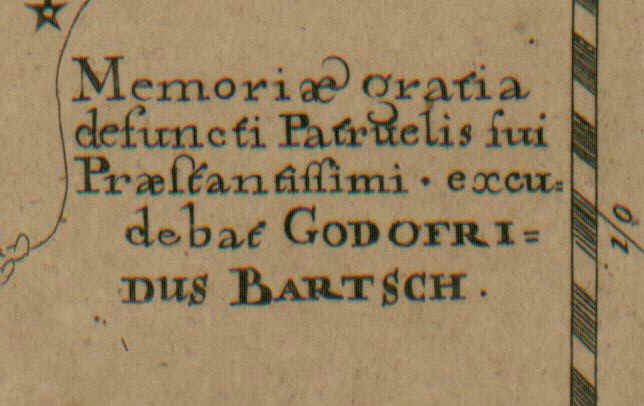 Memoriæ gratia
defuncti Patruelis ſui
Præſtantiſſimi · excu=
debat GODOFRI=
DUS BARTSCH.
20